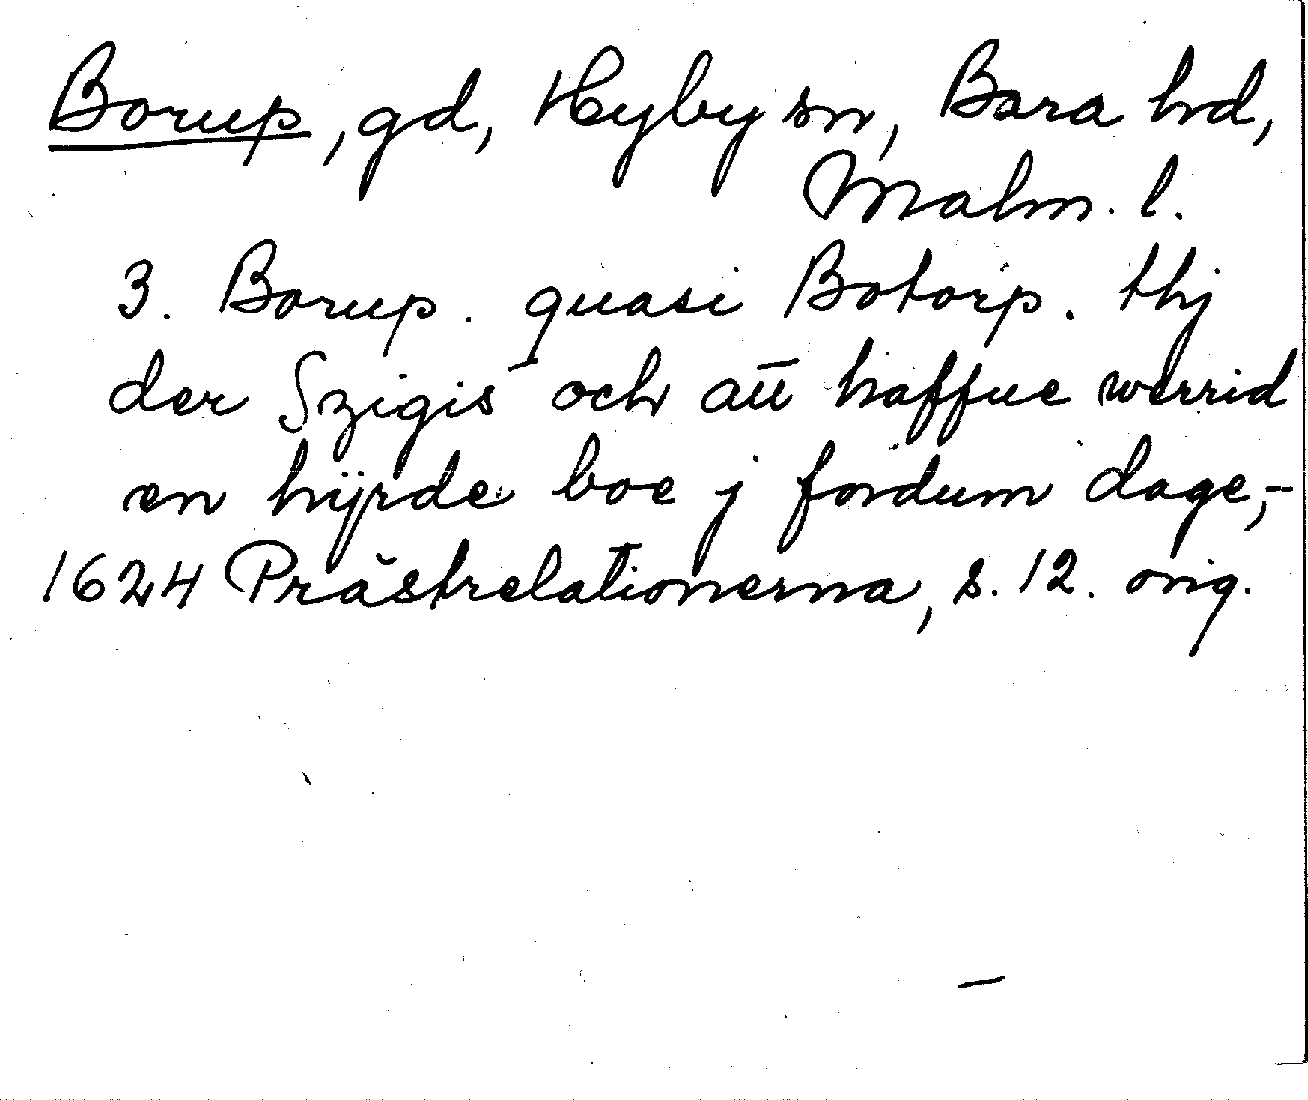 Borup, gd, Hyby sn, Bara hd,
Malm. l.
3. Borup. quasi Botorp. thj
der Szigis och att haffue werrid
en hÿrde boe j fordum dage,-
1624 Prästrelationerna, s. 12. orig.